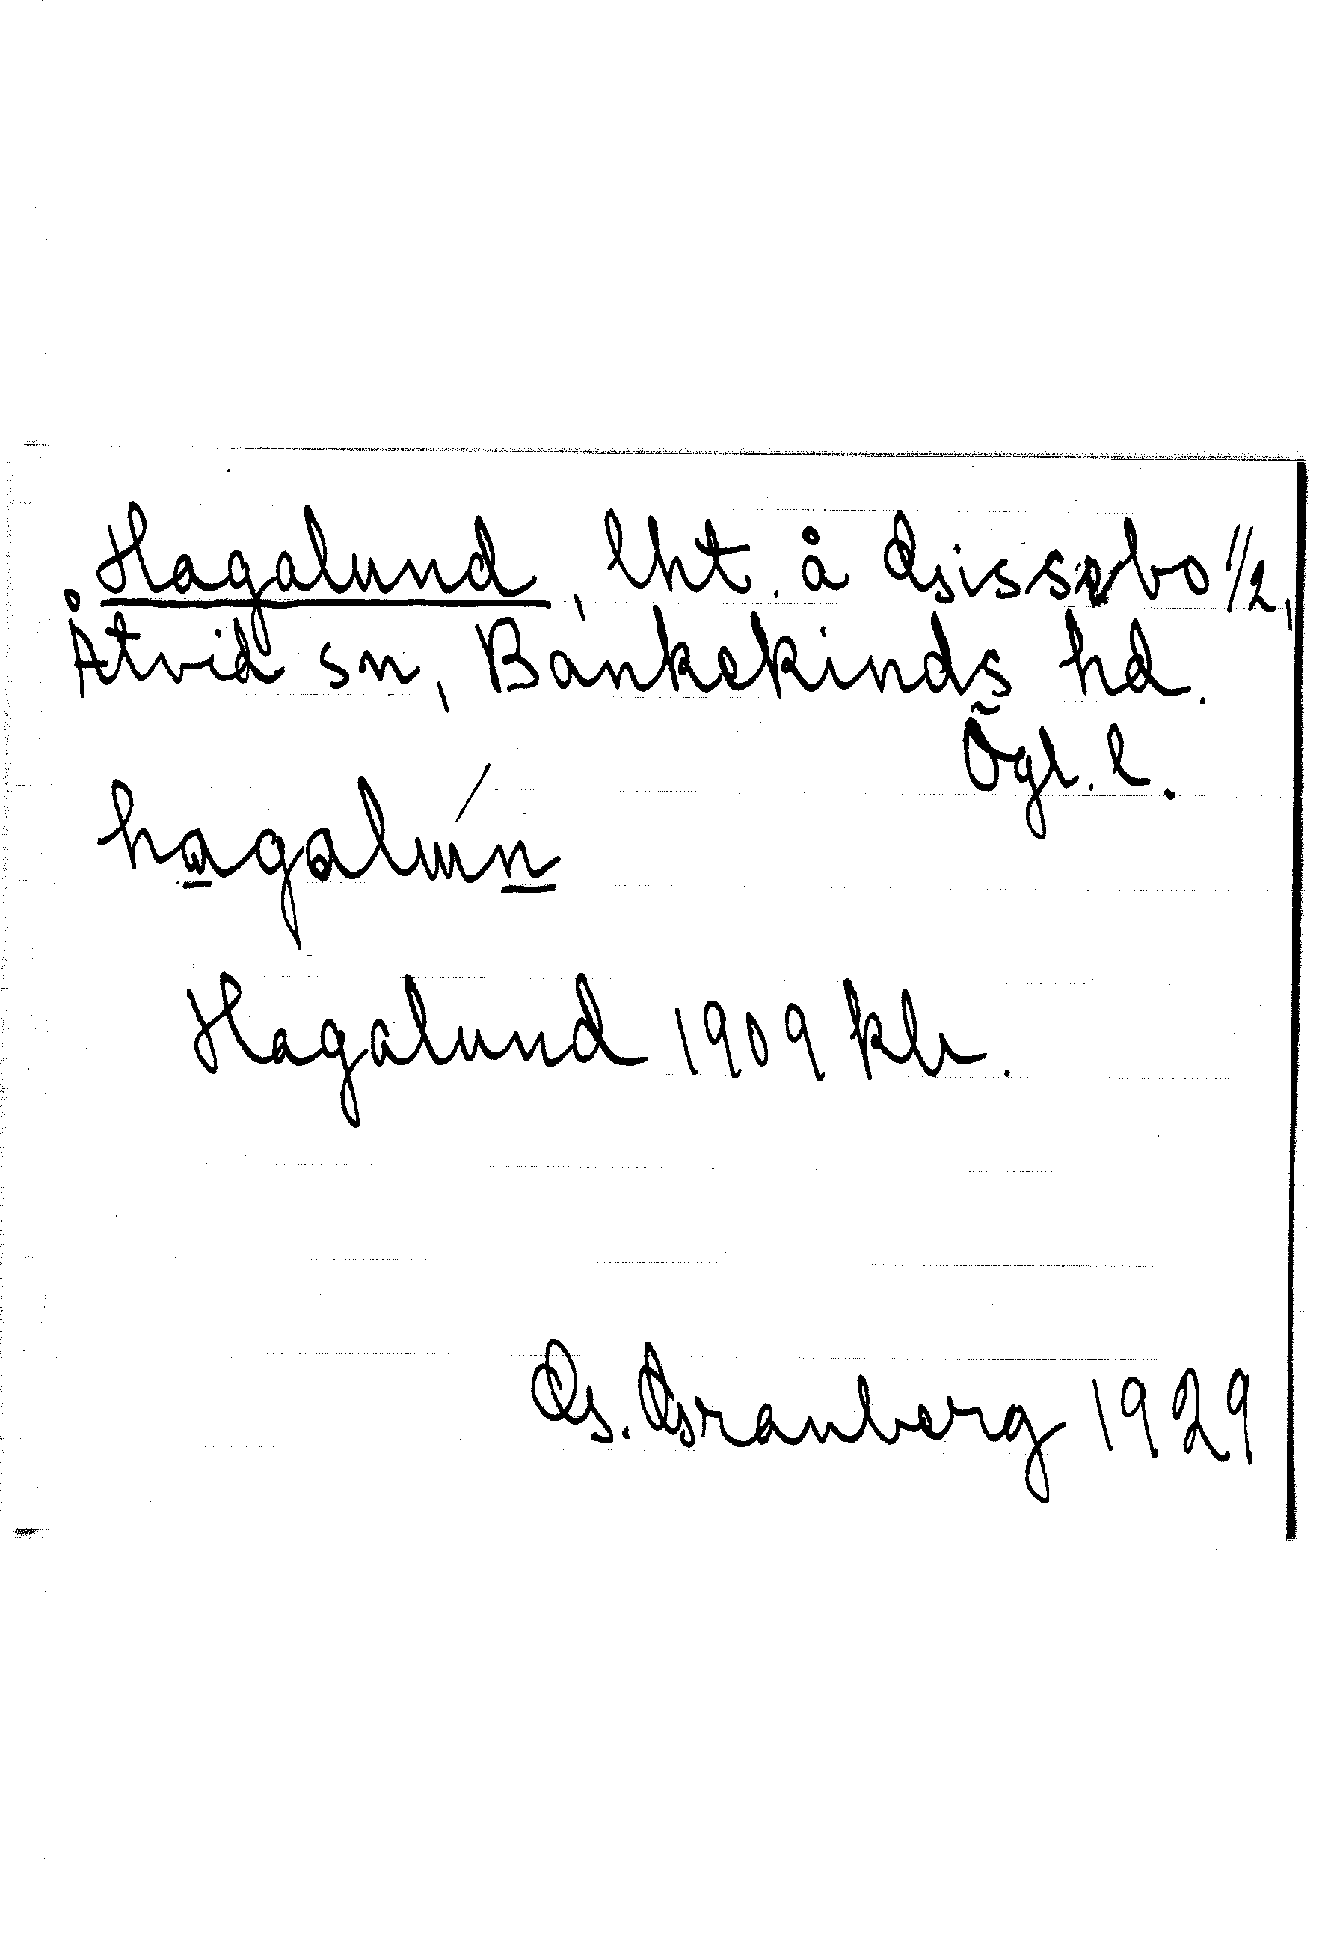 Hagalund, lht. å Gissebo 1/2,
Åtvid sn, Bankekinds hd.
Ögl. l.
hagalún
Hagalund 1909 klr.
G. Granberg 1929